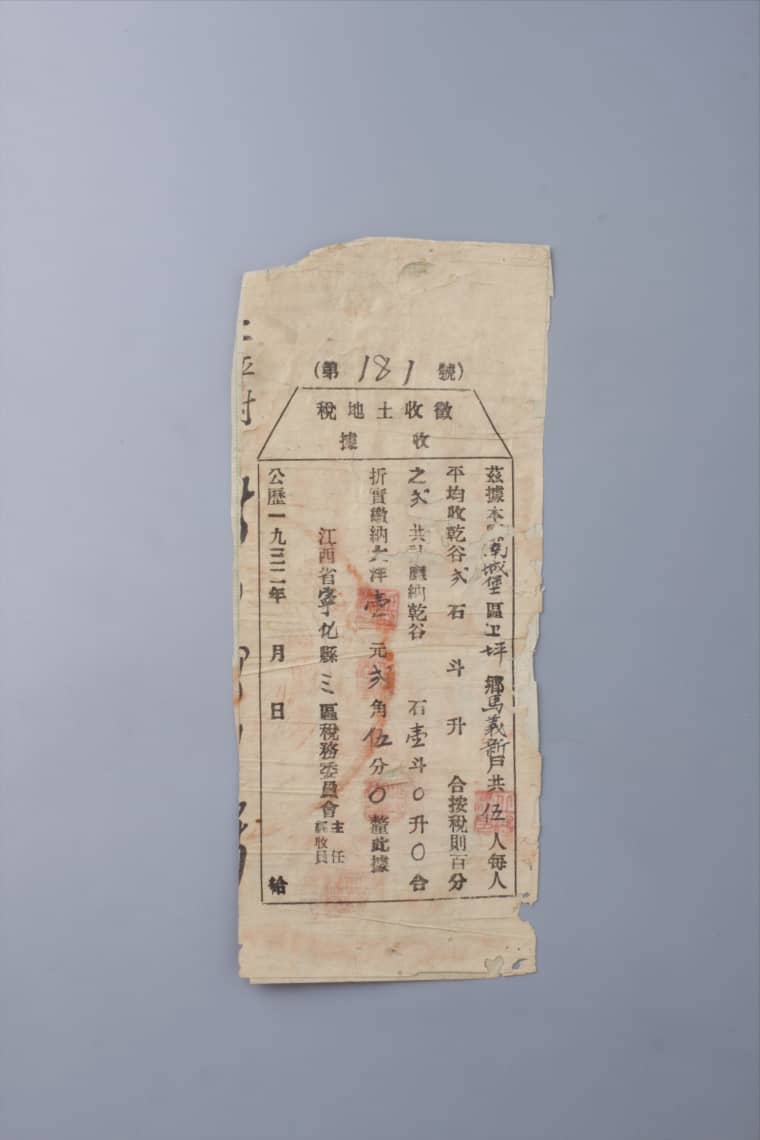 (第181號)
徵收土地稅
收據
茲據本 城堡區上坪鄉馬義新戶共伍人每人
平均收乾谷弍石 斗 升 合按稅則百分
之弍共 應納乾谷 石壹斗〇升〇合
折實繳納大洋壹元弍角伍分〇釐此據
江西省寧化縣三區稅務委員會主任
收員
公歷一九三二年 月 日 給